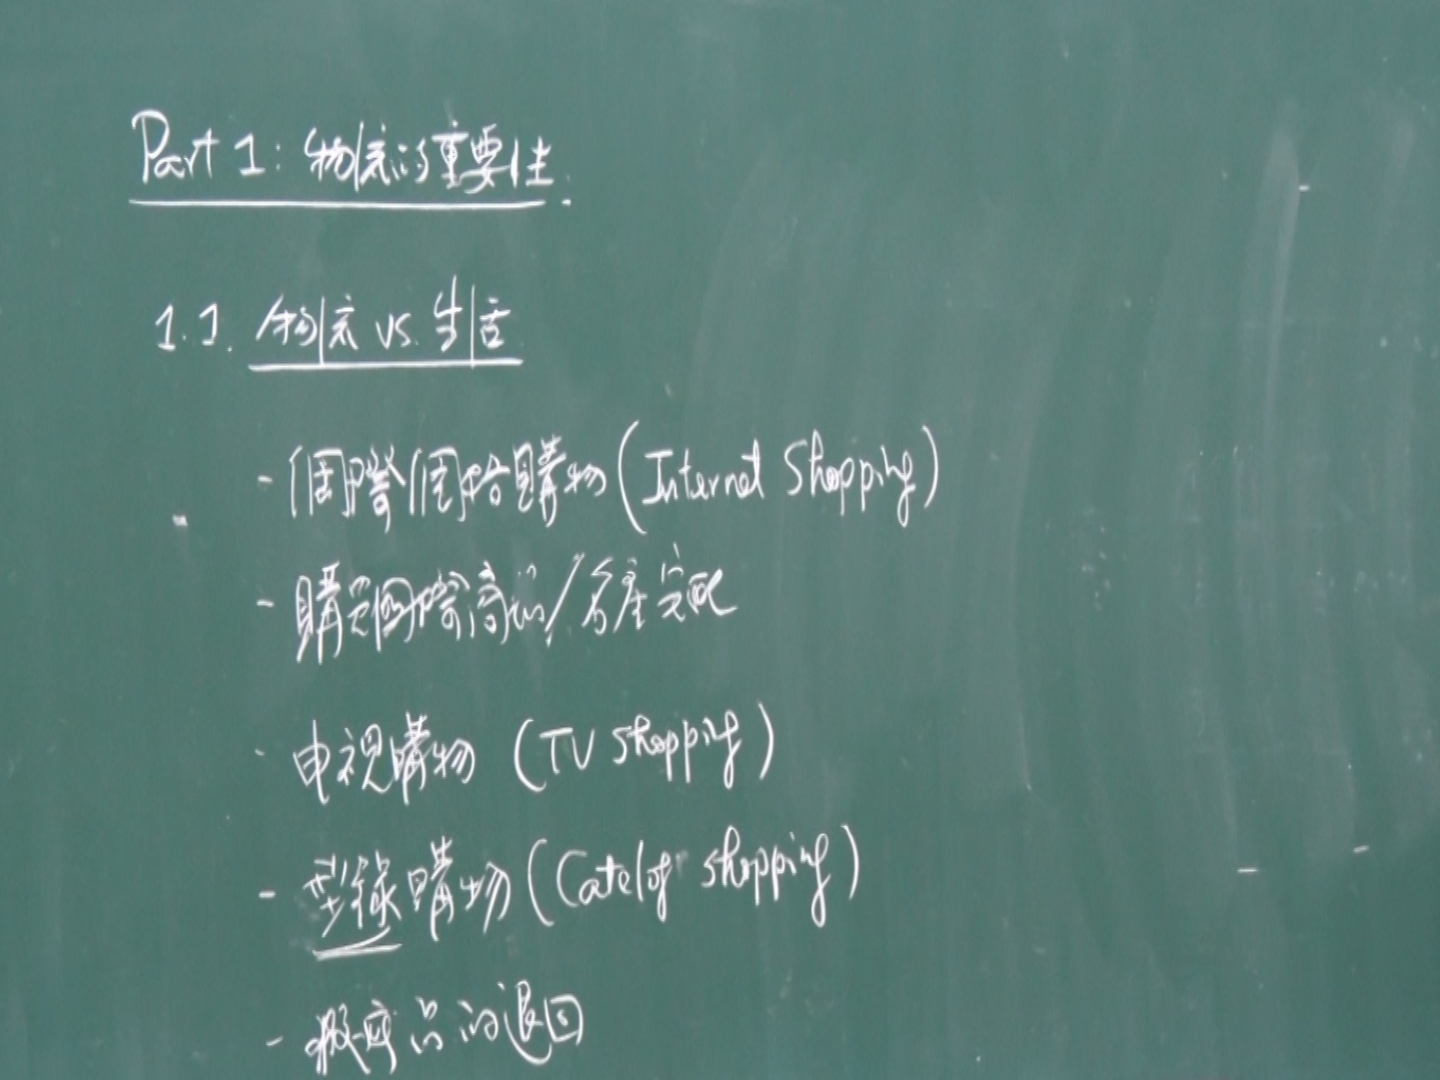 Part 1: 物流的重要性.
1.1. 物流 vs. 生活
- 網路購物 (Internet Shopping)
- 購買網路商品/ 宅配
- 電視購物 (TV shopping)
- 型錄購物 (Catelof shopping)
- 瑕疵品的退回